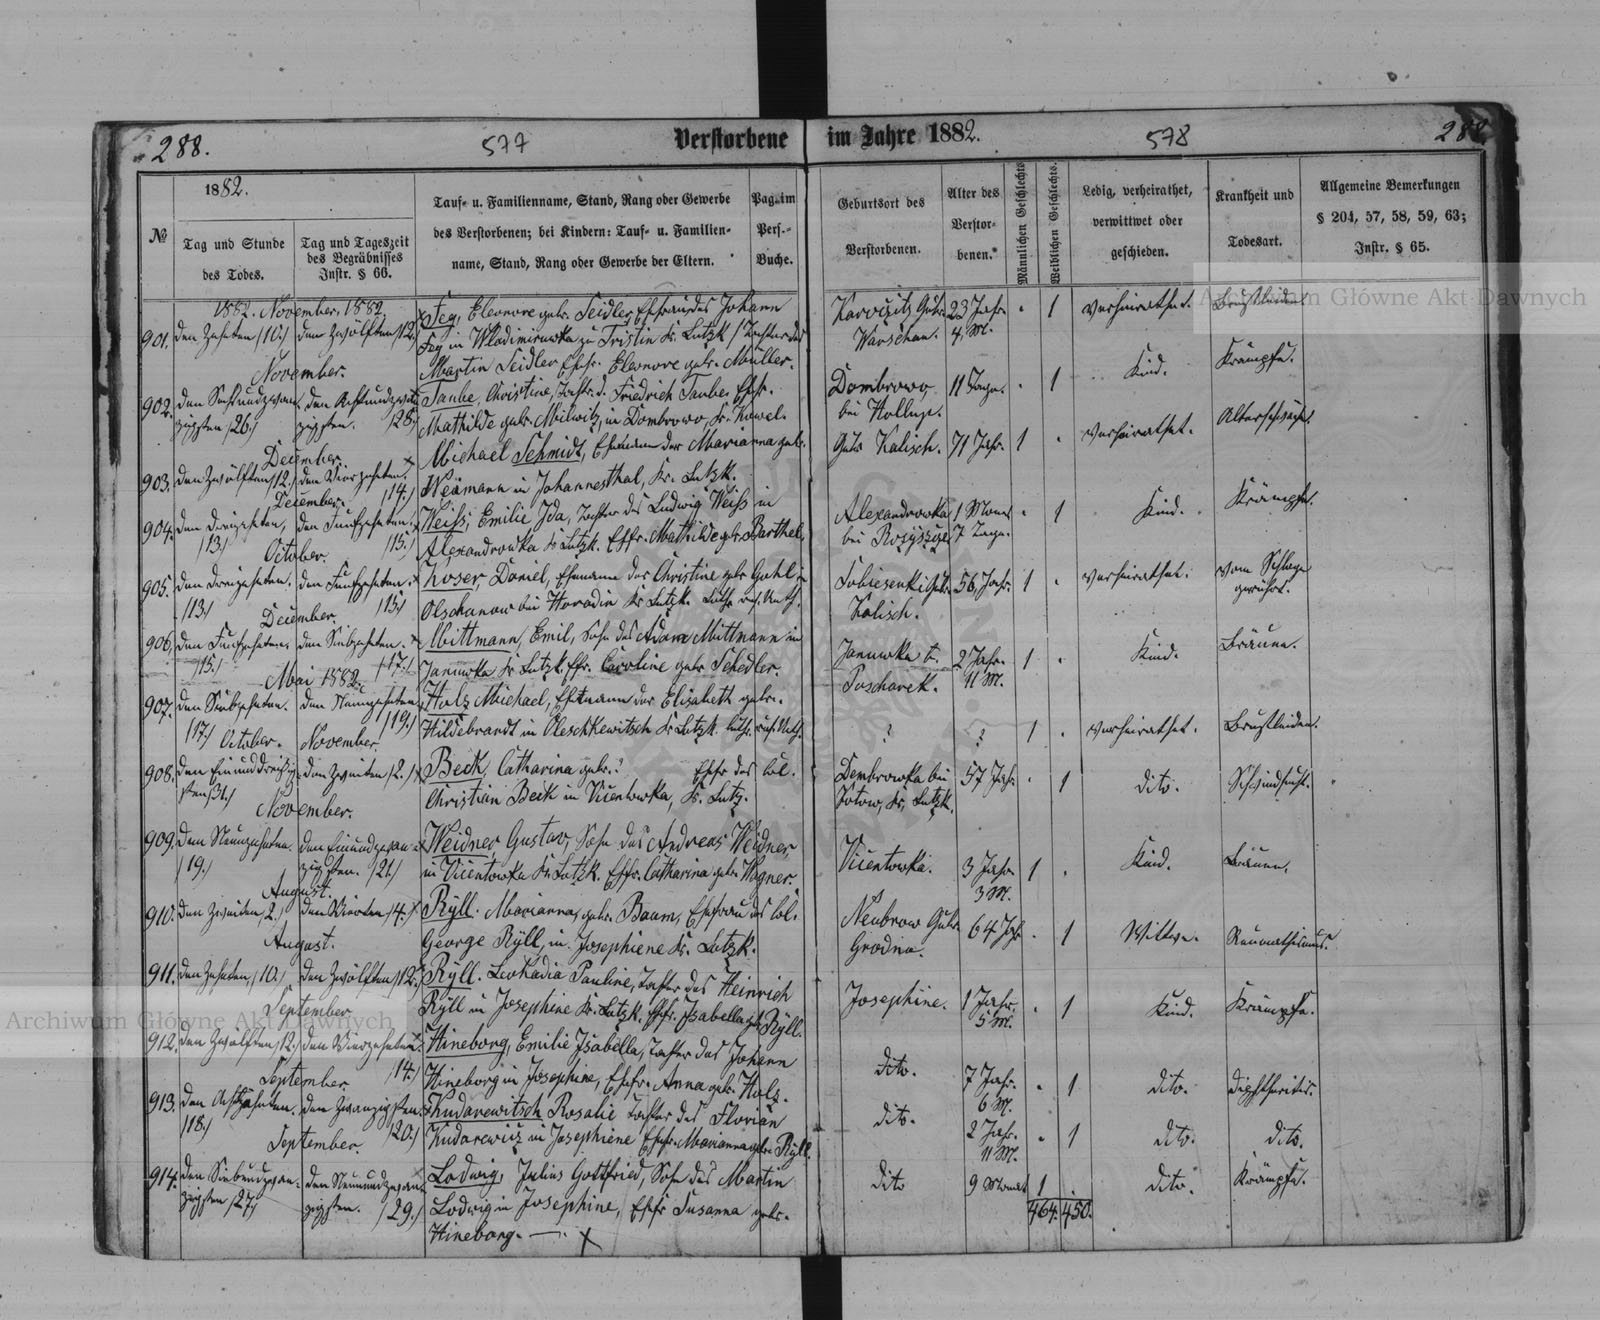 288.
577
Verstorbene
im Jahre 1882.
578
288
№
1882.
Tag und Stunde
des Todes.
Tag und Tageszeit
des Begräbnisses
Instr. § 66.
Tauf- u. Familienname, Stand, Rang oder Gewerbe
des Verstorbenen; bei Kindern: Tauf- u. Familien-
name, Stand, Rang oder Gewerbe der Eltern.
Pag. im
Pers.-
Buche.
Geburtsort des
Verstorbenen.
Alter des
Verstor-
benen.
Männlichen Geschlechts
Weiblichen Geschlechts.
Ledig, verheirathet,
verwittwet oder
geschieden.
Krankheit und
Todesart.
Allgemeine Bemerkungen
§ 204, 57, 58, 59, 63;
Instr. § 65.
1882. November. 1882.
901. den Zehnten /10./ den Zwölften /12./
Feg, Eleonore geb. Seidler, Ehefrau des Johann
Feg in Wladimirowka zu Tristin Kr. Lutzk / Tochter des
Martin Seidler Ehefr. Eleonore geb. Müller.
Gub. Warschau. 23 Jahr. 4. M. 1 verheirathet. Brustleiden
November.
902. den Sechsundzwanzigsten /26./ den Achtundzwanzigsten. /28./
Taube, Christine, Tochter d. Friedrich Taube. Ehefr.
Mathilde geb. Milwitz, in Dombrowo, Kr. Kowel.
Dombrowo, bei 11 Tage. 1 Kind. Krämpfe.
December.
903. den Zwölften /12./ den Vierzehnten. /14./
Michael Schmidt, Ehemann der Marianna geb.
Neumann in Johannesthal, Kr. Lutzk.
Gub. Kalisch. 71 Jahr. 1 verheirathet. Altersschwäche.
December.
904. den Dreizehnten, /13./ den Fünfzehnten. /15./
Weiss, Emilie Ida, Tochter des Ludwig Weiss in
Alexandrowka Kr. Lutzk. Ehefr. Mathilde geb. Barthel.
Alexandrowka bei Rozyszcze 1 Monat 7 Tage. 1 Kind. Krämpfe.
October.
905. den Dreizehnten. /13./ den Fünfzehnten. /15./
Daniel, Ehemann der Christine geb. Gohl in
Olschanow bei Horodin Kr. Lutzk.
Gub. Kalisch. 56 Jahr. 1 verheirathet. vom Schlage gerührt.
December.
906. den Fünfzehnten. /15./ den Siebzehnten. /17./
Mittmann, Emil, Sohn des Adam Mittmann in
Janowka Kr. Lutzk. Ehefr. Caroline geb. Schedler.
Janowka 2 Jahr. 11 M. 1 Kind. Bräune.
Mai 1882.
907. den Siebzehnten. /17./ den Neunzehnten /19./
Holz Michael, Ehemann der Elisabeth geb.
Hildebrandt in Oleschkewitsch Kr. Lutzk.
? ? 1 verheirathet. Brustleiden.
October. November.
908. den Einunddreißigsten /31./ den Zweiten /2./
Beck, Catharina geb. ? Ehefr. des Col.
Christian Beck in Vicentowka, Kr. Lutz.
Dombrowka bei Kr. Lutzk. 57 Jahr 1 dito. Schwindsucht.
November.
909. den Neunzehnten. /19./ den Einundzwanzigsten. /21./
Weidner, Gustav, Sohn des Andreas Weidner,
in Vicentowka Kr. Lutzk. Ehefr. Catharina geb. Wagner.
Vicentowka. 3 Jahr. 3 M. 1 Kind. Bräune.
August.
910. den Zweiten /2./ den Vierten /4./
Ryll. Marianna, geb. Baum, Ehefrau des Col.
George Ryll, in Josephiene Kr. Lutzk.
Gub. Grodno. 64 Jahr 1 Wittwe. Reumathismus.
August.
911. den Zehnten, /10./ den Zwölften /12./
Ryll. Leokadia Pauline, Tochter des Heinrich
Ryll in Josephine Kr. Lutzk. Ehefr. Isabella geb. Ryll.
Josephine. 1 Jahr. 5 M. 1 Kind. Krämpfe.
September
912. den Zwölften /12./ den Vierzehnten. /14./
Hineborg, Emilie Isabella, Tochter des Johann
Hineborg in Josephine, Ehefr. Anna geb. Holz.
dito. 7 Jahr. 6 M. 1 dito. Diphtheritis.
September
913. den Achtzehnten. /18./ den Zwanzigsten. /20./
Kudarewitsch Rosalie Tochter des Florian
Kudarewicz in Josephiene Ehefr. Marianna geb. Ryll.
dito. 2 Jahr. 11 M. 1 dito. dito.
September.
914. den Siebenundzwanzigsten /27./ den Neunundzwanzigsten. /29./
Lodwig, Julius Gottfried, Sohn des Martin
Lodwig in Josephine, Ehefr. Susanna geb.
Hineborg.
dito 9 Monat 1 dito. Krämpfe.
464. 450.
Archiwum Główne Akt Dawnych
Archiwum Główne Akt Dawnych